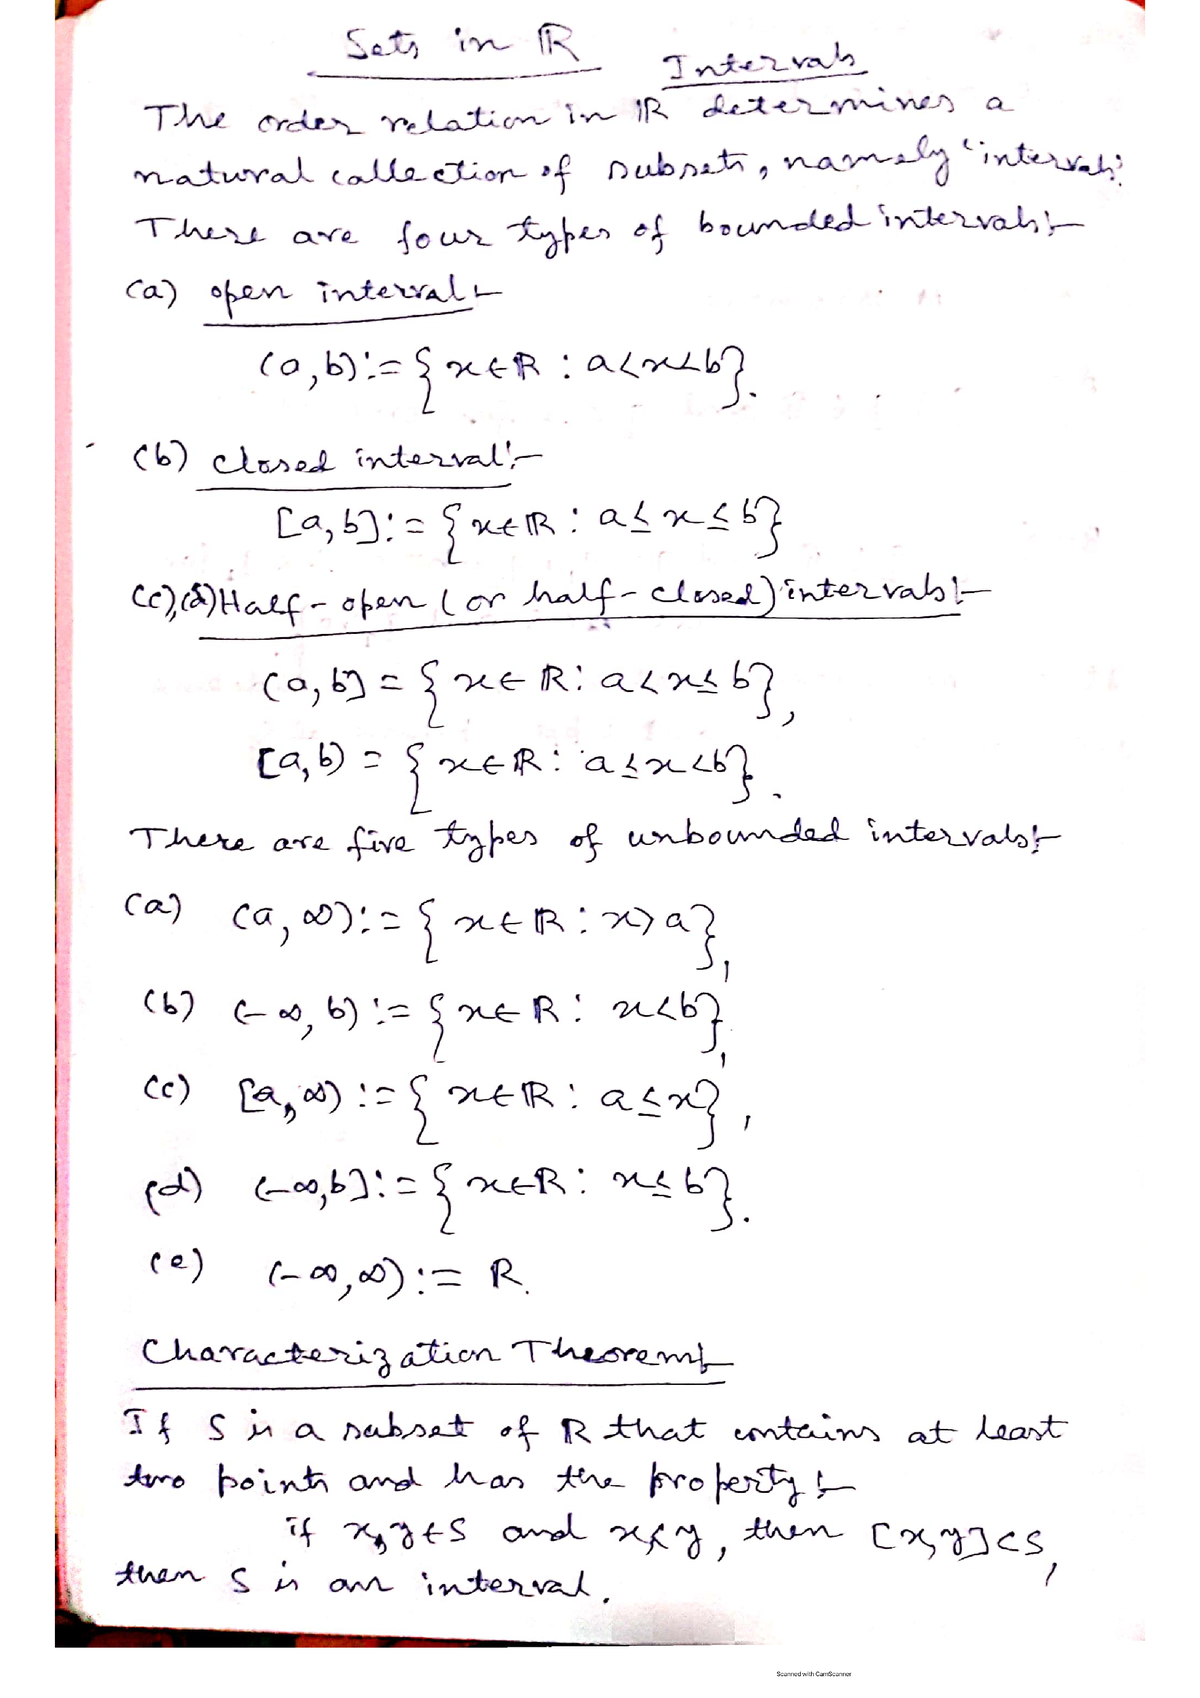 Sets in ℝ
Intervals
The order relation in ℝ determines a
natural collection of subsets, namely 'intervals'.
There are four types of bounded intervals:-
(a) open interval:-
(a,b):={x∈ℝ : a<x<b}.
(b) closed interval:-
[a,b]:={x∈ℝ : a≤x≤b}
(c),(d) Half-open (or half-closed) intervals:-
(a,b]={x∈ℝ: a<x≤b},
[a,b)={x∈ℝ: a≤x<b}.
There are five types of unbounded intervals:-
(a) (a,∞):={x∈ℝ: x>a},
(b) (-∞,b):={x∈ℝ: x<b},
(c) [a,∞):={x∈ℝ: a≤x},
(d) (-∞,b]:={x∈ℝ: x≤b}.
(e) (-∞,∞):=ℝ.
Characterization Theorem:-
If S is a subset of ℝ that contains at least
two points and has the property:-
if x,y∈S and x<y, then [x,y]⊂S,
then S is an interval.
Scanned with CamScanner